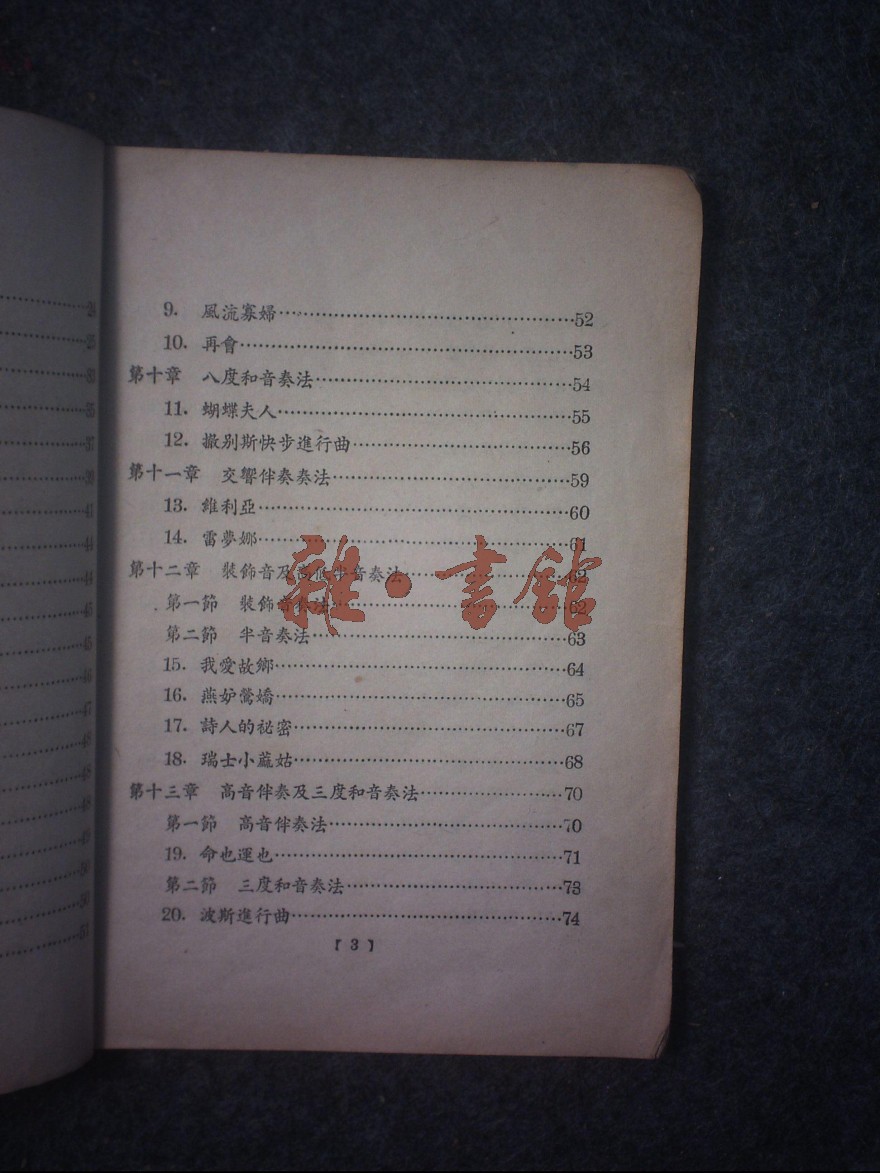 9. 風流寡婦……52
10. 再會……53
第十章 八度和音奏法……54
11. 蝴蝶夫人……55
12. 撤别斯快步進行曲……56
第十一章 交響伴奏奏法……59
13. 維利亞……60
14. 雷夢娜……61
第十二章 裝飾音及高低半音奏法……62
第一節 裝飾音奏法……62
第二節 半音奏法……63
15. 我愛故鄉……64
16. 燕妒鶯嬌……65
17. 詩人的祕密……67
18. 瑞士小蘑姑……68
第十三章 高音伴奏及三度和音奏法……70
第一節 高音伴奏法……70
19. 命也運也……71
第二節 三度和音奏法……73
20. 波斯進行曲……74
【3】
雜·書館